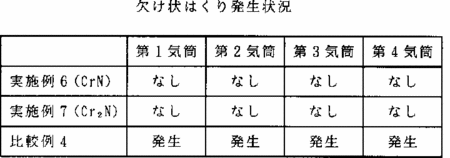 欠け状はくり発生状況
第1気筒 第2気筒 第3気筒 第4気筒
実施例6(CrN) なし なし なし なし
実施例7(Cr₂N) なし なし なし なし
比較例4 発生 発生 発生 発生